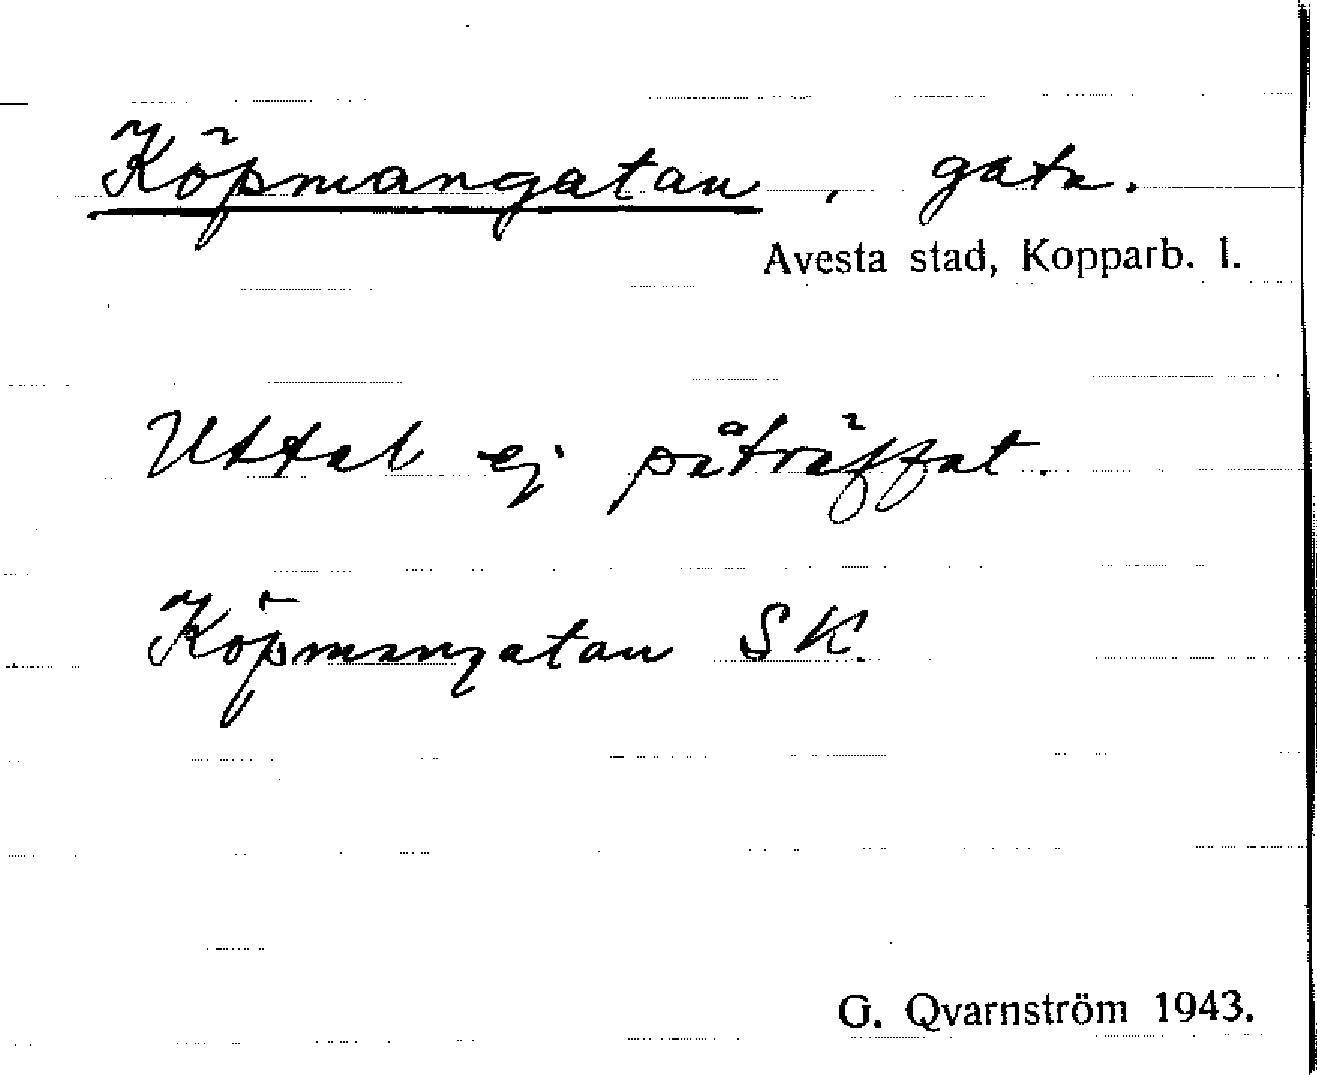 Köpmangatan, gata.
Avesta stad, Kopparb. l.
Uttal ej påträffat.
Köpmangatan SK.
G. Qvarnström 1943.